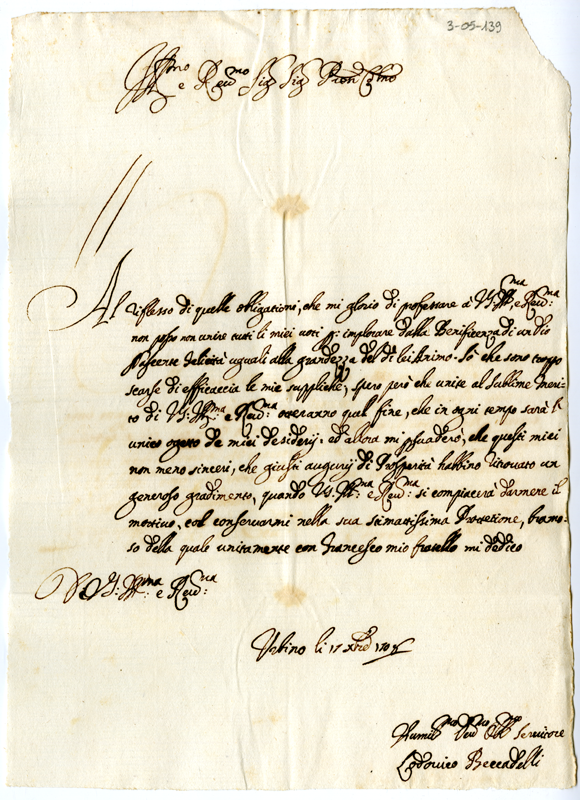 3-05-139
Ill:mo e Reu:mo Sig: Sig: Pron Col:mo
Al riflesso di quelle obligationi, che mi glorio di professare à V.S: Ill:ma e Reu:ma
non posso non unire tutti li miei uoti p: implorare dalla Beneficenza di un Dio
Nascente felicità uguali alla grandezza del di lei
scarse di efficaccia le mie suppliche, spero però che unite al sublime meri-
to di V.S: Ill:ma e Reu:ma otteranno quel fine, che in ogni tempo sarà l'
unico ogetto de miei desiderij: ed allora mi psuaderò, che questi miei
non meno sinceri, che giusti augurij di Prosperità habbino ritrouato un
generoso gradimento, quando V.S: Ill:ma e Reu:ma si compiacerà darmene il
mottiuo, col conseruarmi nella sua stimattissima Protetione, bramo-
so della quale unitamente con Francesco mio fratello mi dedico
Di V.S: Ill:ma e Reu:ma
Urbino li 17 Xbre
Humil:mo Deu:mo Obl:mo Seruitore
Lodouico Beccadelli